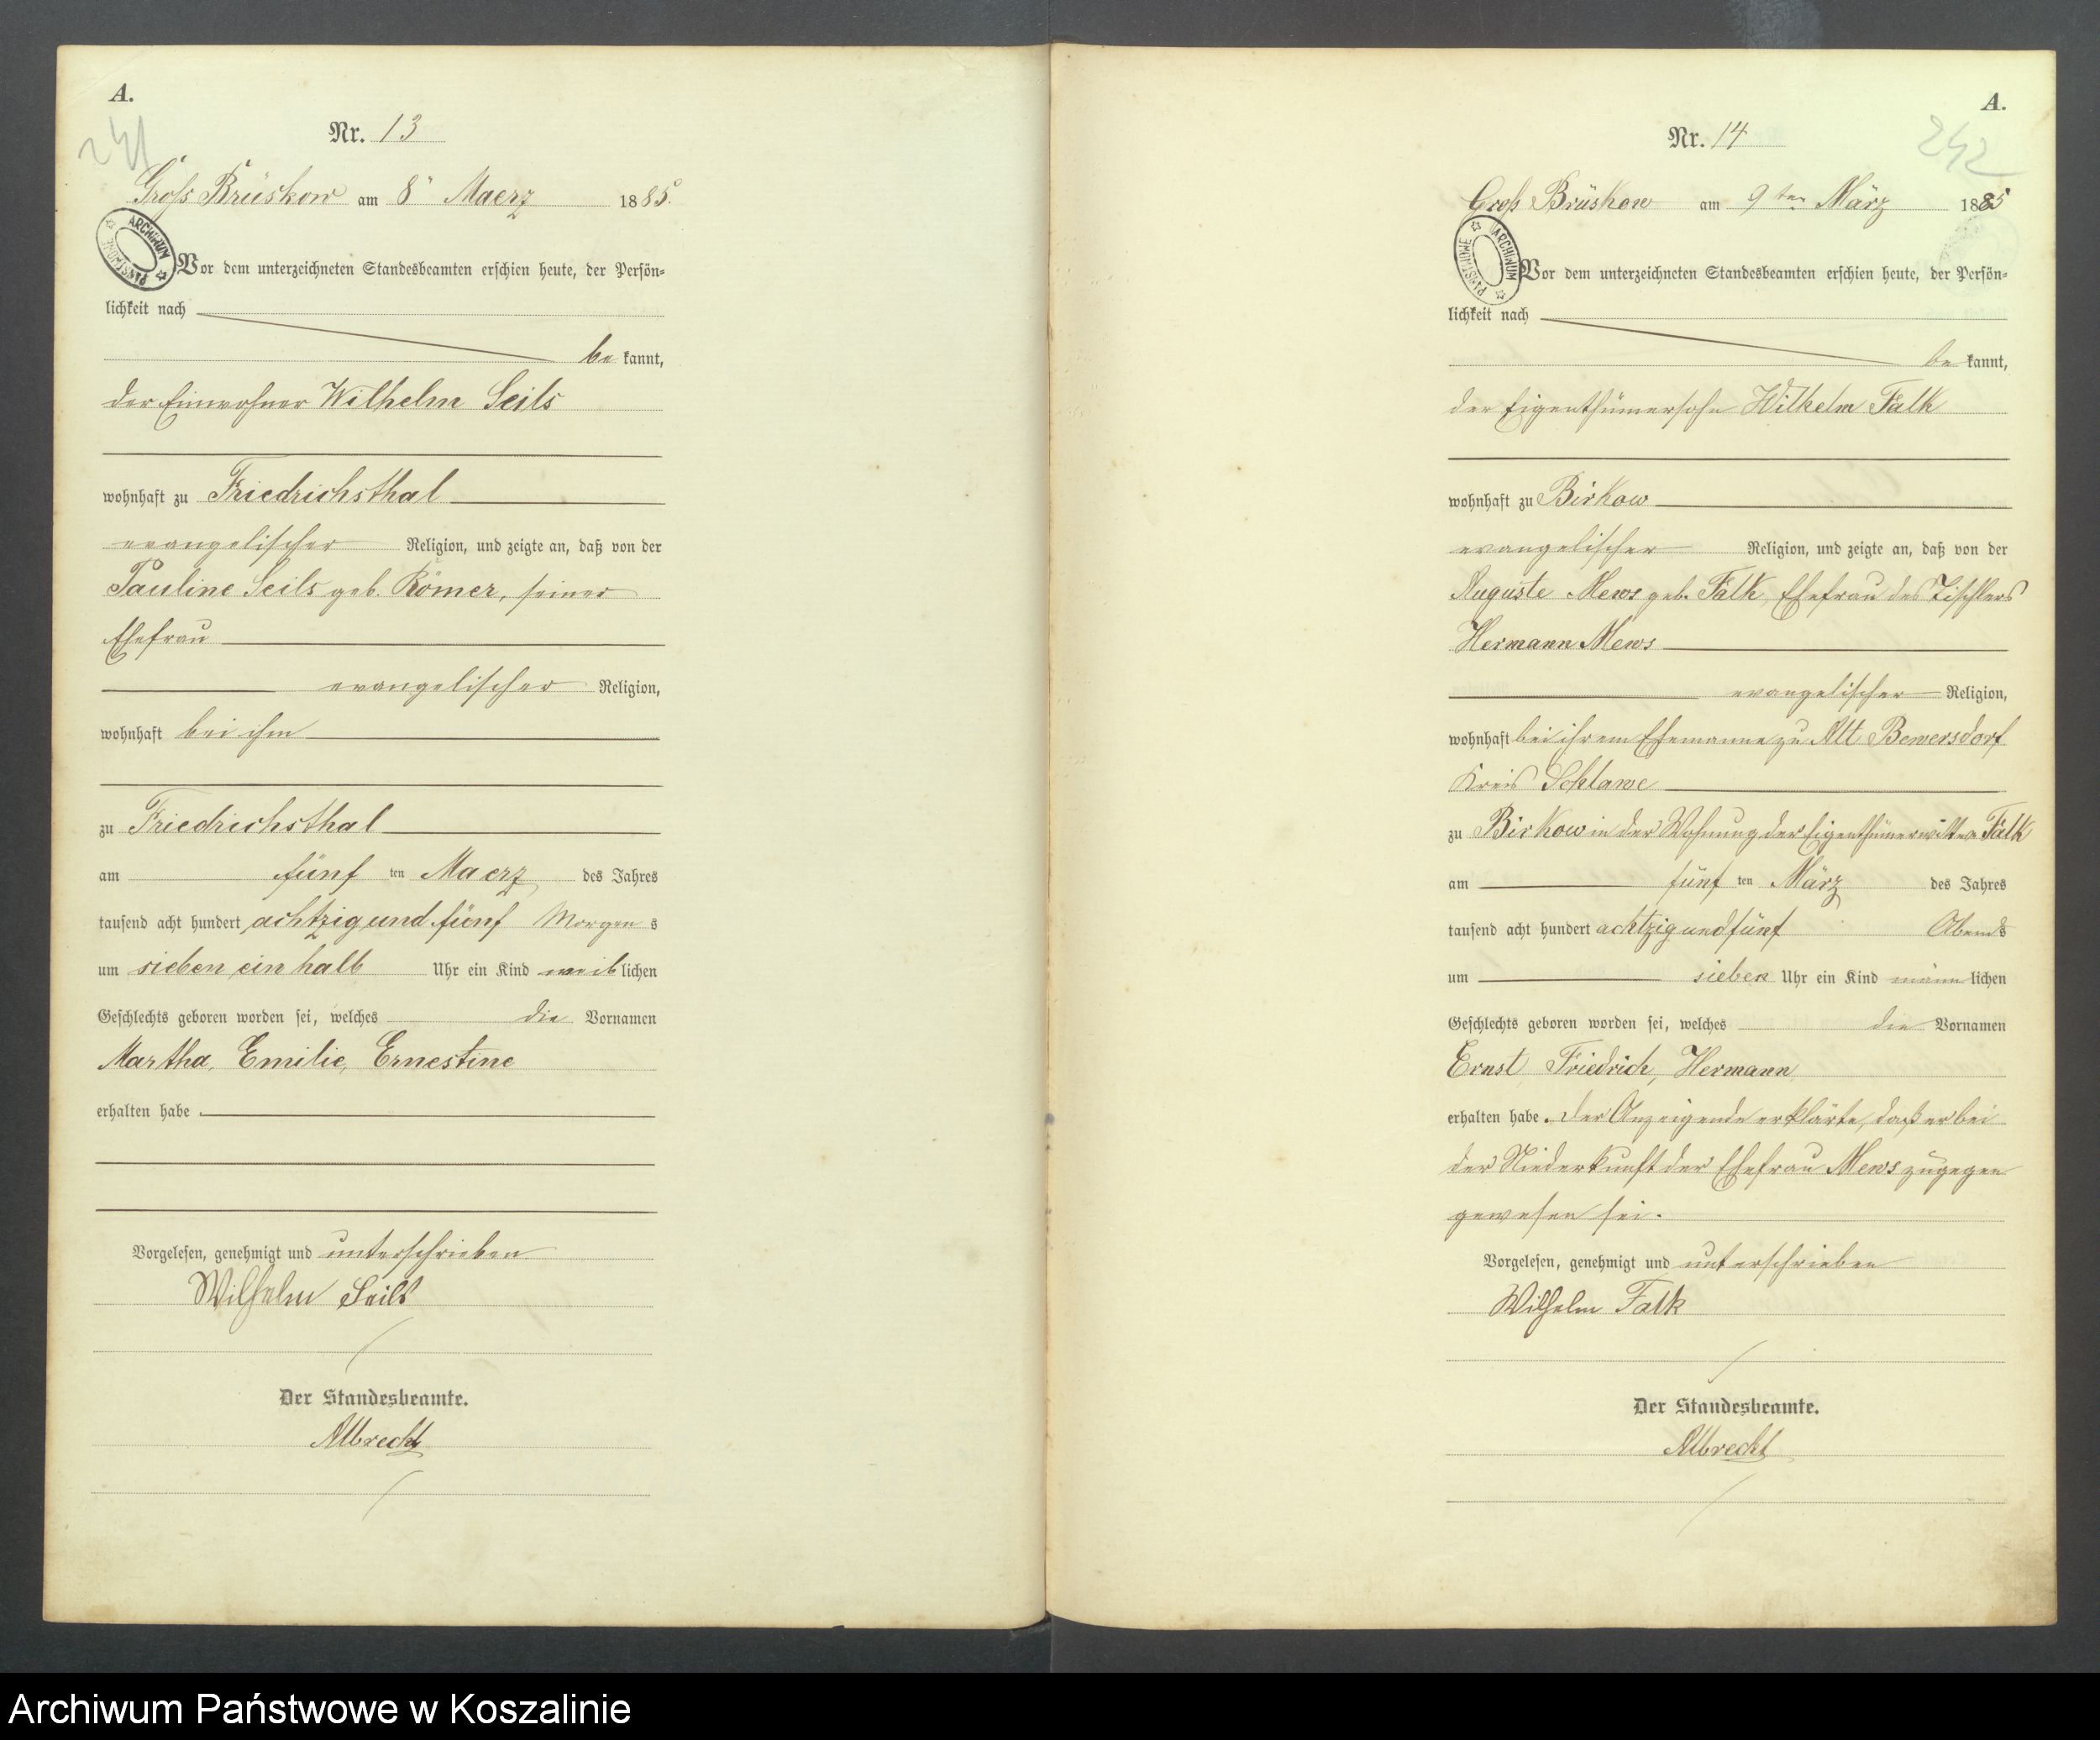 A.
241
Nr. 13
Groß Brüskow am 8" Maerz 1885.
ARCHIWUM PAŃSTWOWE
Vor dem unterzeichneten Standesbeamten erschien heute, der Persön-
lichkeit nach
be kannt,
der Einwohner Wilhelm Seils
wohnhaft zu Friedrichsthal
evangelischer Religion, und zeigte an, daß von der
Pauline Seils geb. Römer, seiner
Ehefrau
evangelischer Religion,
wohnhaft bei ihm
zu Friedrichsthal
am fünf ten Maerz des Jahres
tausend acht hundert achtzig und fünf Morgen s
um sieben ein halb Uhr ein Kind weib lichen
Geschlechts geboren worden sei, welches die Vornamen
Martha, Emilie, Ernestine
erhalten habe.
Vorgelesen, genehmigt und unterschrieben
Wilhelm Seils
Der Standesbeamte.
Albrecht
A.
242
Nr. 14
Groß Brüskow am 9ten März 1885
ARCHIWUM PAŃSTWOWE
Vor dem unterzeichneten Standesbeamten erschien heute, der Persön-
lichkeit nach
be kannt,
der Eigenthümersohn Wilhelm Falk
wohnhaft zu Birkow
evangelischer Religion, und zeigte an, daß von der
Auguste Mews geb. Falk, Ehefrau des Tischlers
Hermann Mews
evangelischer Religion,
wohnhaft bei ihrem Ehemanne zu Alt Bewersdorf
Kreis Schlawe
zu Birkow in der Wohnung der Eigenthümerwittwe Falk
am fünf ten März des Jahres
tausend acht hundert achtzig und fünf Abends
um sieben Uhr ein Kind männ lichen
Geschlechts geboren worden sei, welches die Vornamen
Ernst, Friedrich, Hermann
erhalten habe. Der Anzeigende erklärte, daß er bei
der Niederkunft der Ehefrau Mews zugegen
gewesen sei.
Vorgelesen, genehmigt und unterschrieben
Wilhelm Falk
Der Standesbeamte.
Albrecht
Archiwum Państwowe w Koszalinie